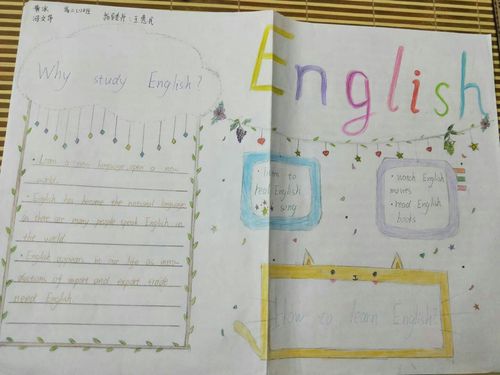 Why study English?
• Learn a new language open a new
world.
• English has become the national language
as there are many people speak English in
the world.
• English appears in our life as intro-
ductions of import and export trade
need English.
English
• learn to
read English
sing
• watch English
movies
• read English
books
How to learn English?